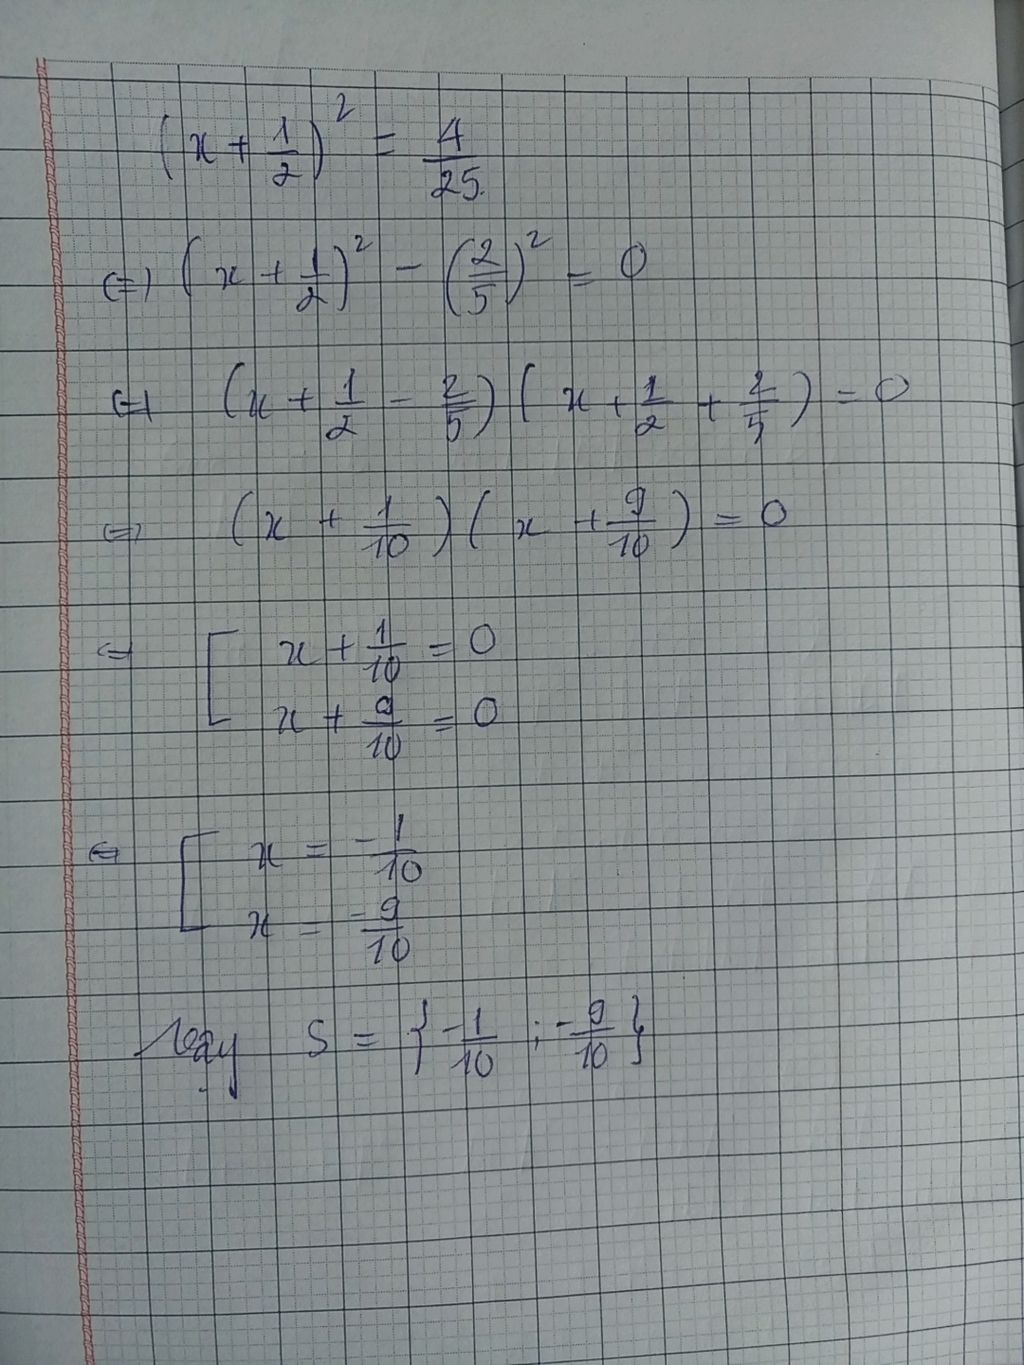 (x + 1/2)² = 4/25
⇔ (x + 1/2)² - (2/5)² = 0
⇔ (x + 1/2 - 2/5)(x + 1/2 + 2/5) = 0
⇔ (x + 1/10)(x + 9/10) = 0
⇔ [ x + 1/10 = 0
x + 9/10 = 0
⇔ [ x = -1/10
x = -9/10
Vậy S = {-1/10 ; -9/10}